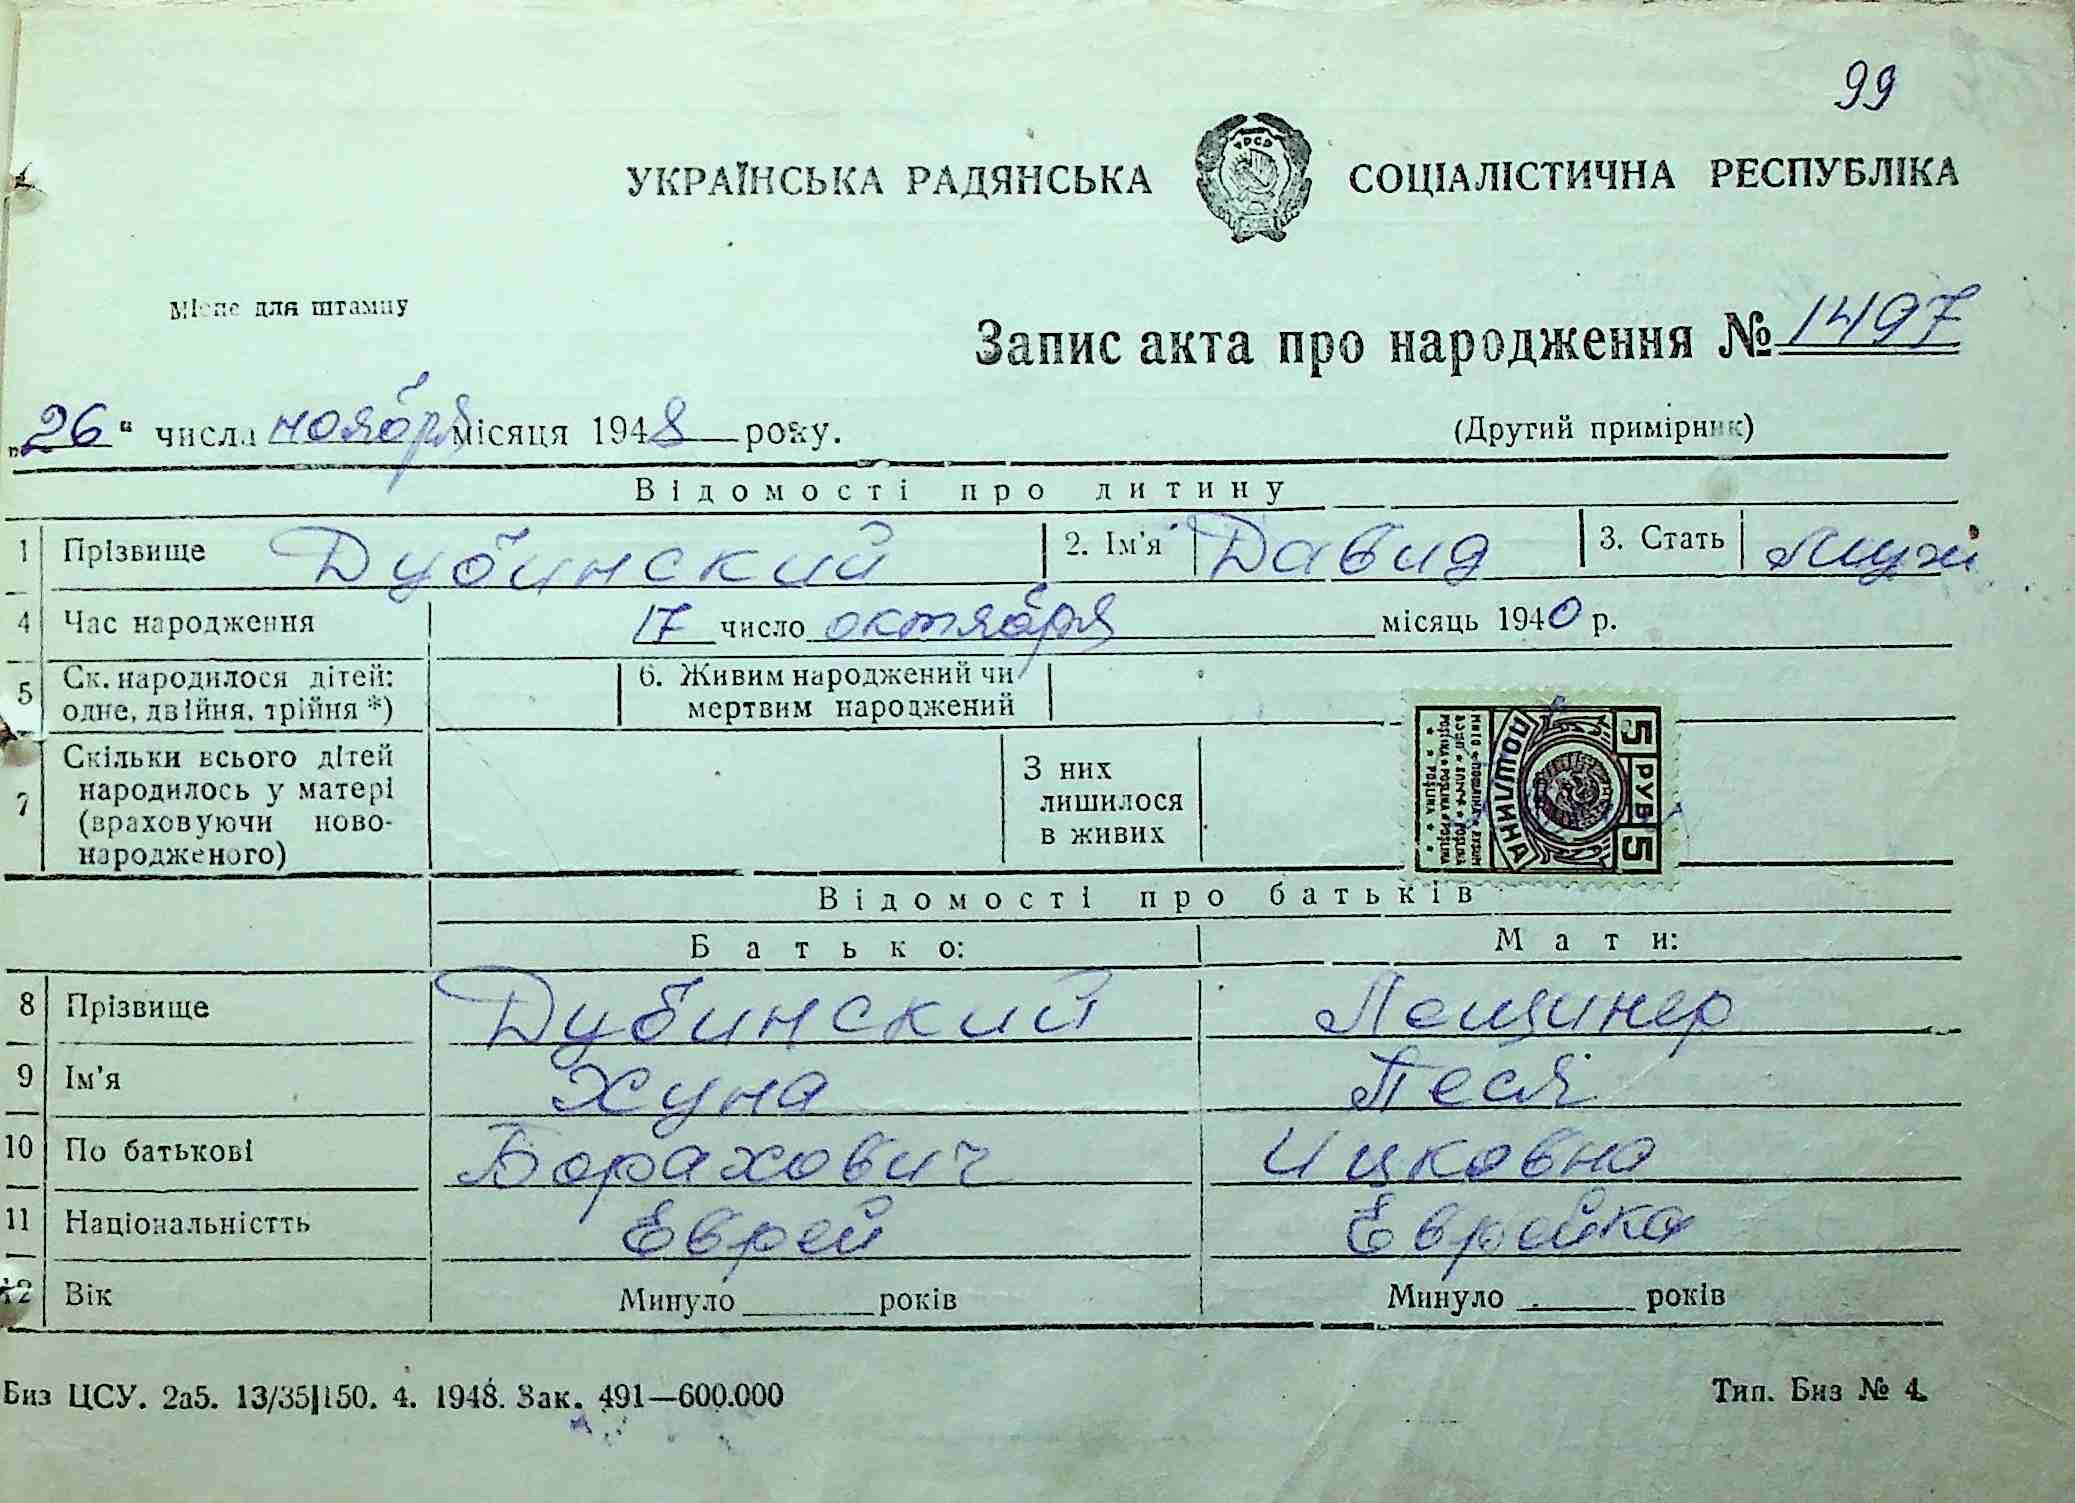 99
УКРАЇНСЬКА РАДЯНСЬКА СОЦІАЛІСТИЧНА РЕСПУБЛІКА
УРСР
Місце для штампу
Запис акта про народження № 1497
„26“ числа ноября місяця 1948 року.
(Другий примірник)
Відомості про дитину
1 Прізвище Дубинский 2. Ім'я Давид 3. Стать муж
4 Час народження 17 число октября місяць 1940 р.
5 Ск. народилося дітей: одне, двійня, трійня *) 6. Живим народжений чи мертвим народжений
7 Скільки всього дітей народилось у матері (враховуючи ново-народженого) З них лишилося в живих
5 РУБ 5
ПОШЛИНА
Відомості про батьків
Батько: Мати:
8 Прізвище Дубинский Лещинер
9 Ім'я Хуна Песя
10 По батькові Борахович Ицковна
11 Національністть Еврей Еврейка
12 Вік Минуло років Минуло років
Биз ЦСУ. 2а5. 13/35|150. 4. 1948. Зак. 491—600.000
Тип. Биз № 4.